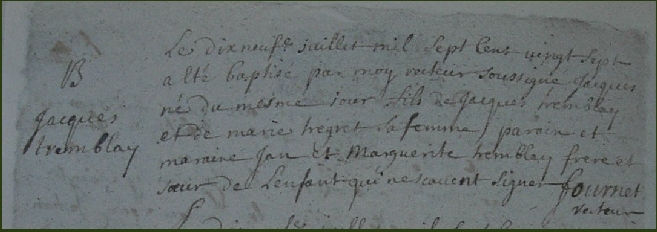 B
Jacques
tremblay
Le dixneufe juillet mil sept Cens vingt sept
a esté baptisé par moy recteur soussigné Jacques
né du mesme iour fils de Jacques tremblay
et de marie tregret sa femme, parain et
maraine Jan et Marguerite tremblay frere et
sœur de Lenfant qui ne scavent signer fournet
recteur